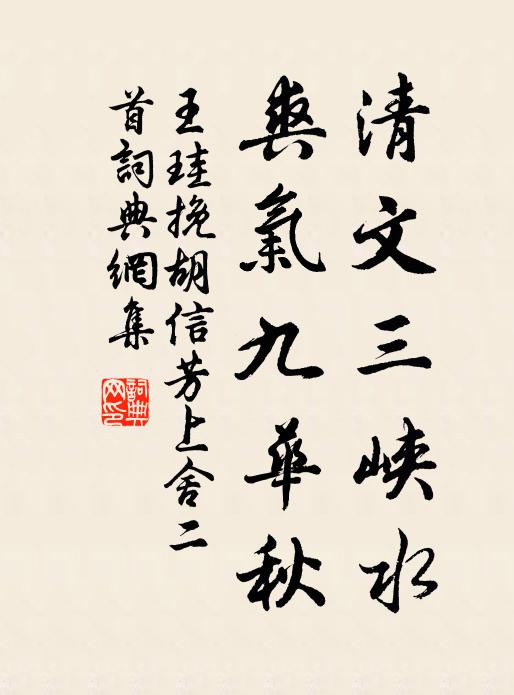 清文三峽水
爽氣九華秋
王珪挽胡信芳上舍二
首詞典網集
詞典
网印